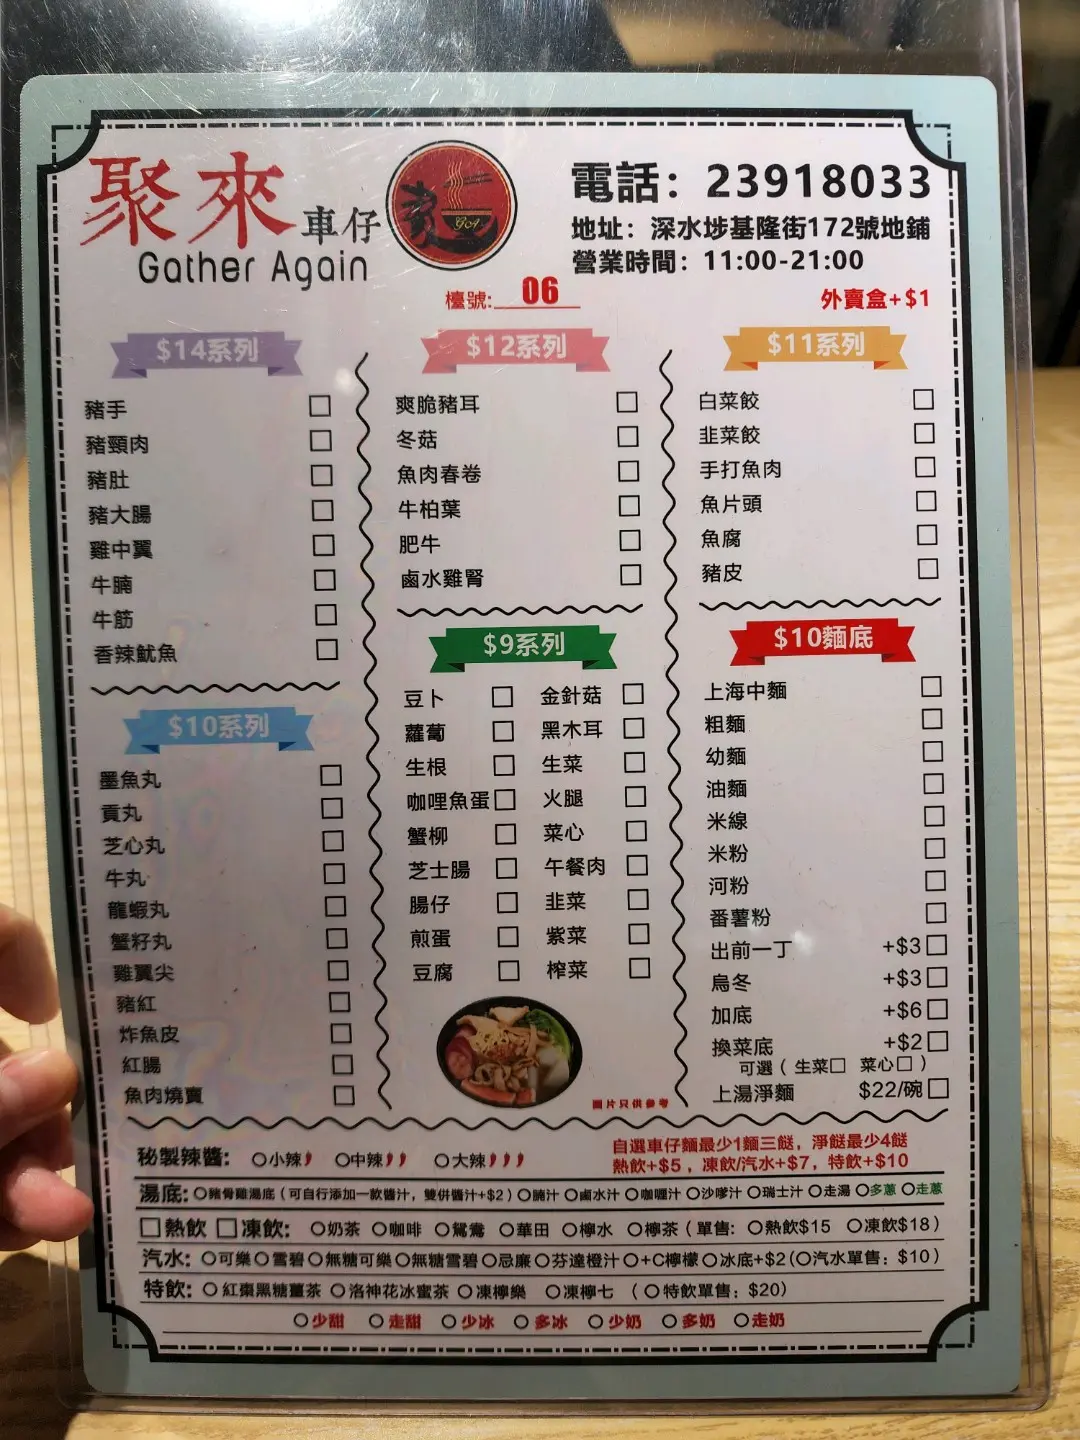 聚來車仔
Gather Again
電話：23918033
地址：深水埗基隆街172號地鋪
營業時間：11:00-21:00
檯號:06
外賣盒+$1
$14系列
豬手
豬頸肉
豬肚
豬大腸
雞中翼
牛腩
牛筋
香辣魷魚
$10系列
墨魚丸
貢丸
芝心丸
牛丸
龍蝦丸
蟹籽丸
雞翼尖
豬紅
炸魚皮
紅腸
魚肉燒賣
$12系列
爽脆豬耳
冬菇
魚肉春卷
牛柏葉
肥牛
鹵水雞腎
$9系列
豆卜 金針菇
蘿蔔 黑木耳
生根 生菜
咖哩魚蛋 火腿
蟹柳 菜心
芝士腸 午餐肉
腸仔 韭菜
煎蛋 紫菜
豆腐 榨菜
圖片只供參考
$11系列
白菜餃
韭菜餃
手打魚肉
魚片頭
魚腐
豬皮
$10麵底
上海中麵
粗麵
幼麵
油麵
米線
米粉
河粉
番薯粉
出前一丁 +$3
烏冬 +$3
加底 +$6
換菜底 +$2
可選（生菜 菜心）
上湯淨麵 $22/碗
秘製辣醬: 小辣 中辣 大辣
自選車仔麵最少1麵三餸，淨餸最少4餸
熱飲+$5，凍飲/汽水+$7，特飲+$10
湯底: 豬骨雞湯底（可自行添加一款醬汁，雙併醬汁+$2） 腩汁 鹵水汁 咖喱汁 沙嗲汁 瑞士汁 走湯 多蔥 走蔥
熱飲 凍飲: 奶茶 咖啡 鴛鴦 華田 檸水 檸茶（單售: 熱飲$15 凍飲$18）
汽水: 可樂 雪碧 無糖可樂 無糖雪碧 忌廉 芬達橙汁 +C檸檬 冰底+$2（汽水單售：$10）
特飲: 紅棗黑糖薑茶 洛神花冰蜜茶 凍檸樂 凍檸七 （特飲單售：$20）
少甜 走甜 少冰 多冰 少奶 多奶 走奶